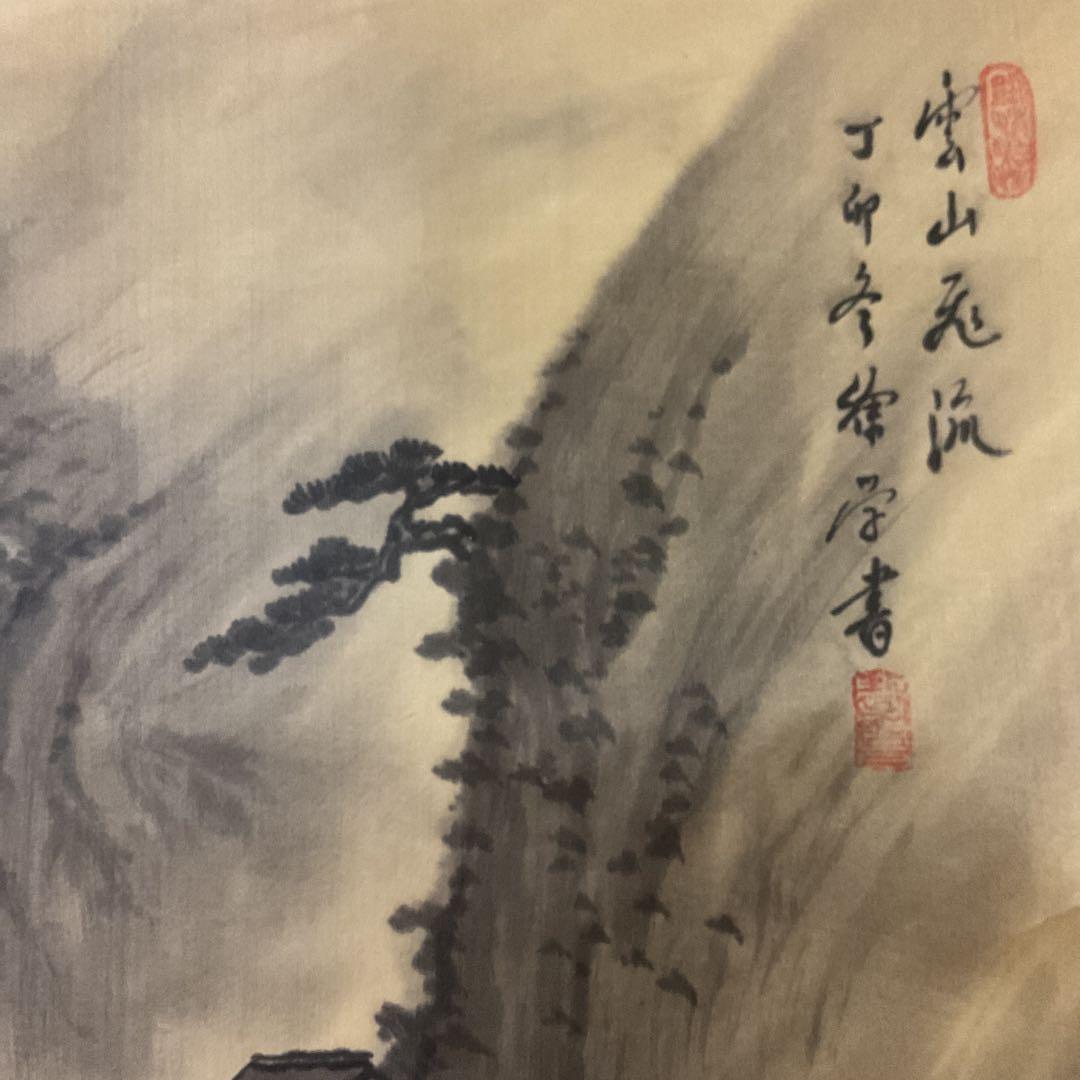 雲山飛流
丁卯冬徐学書